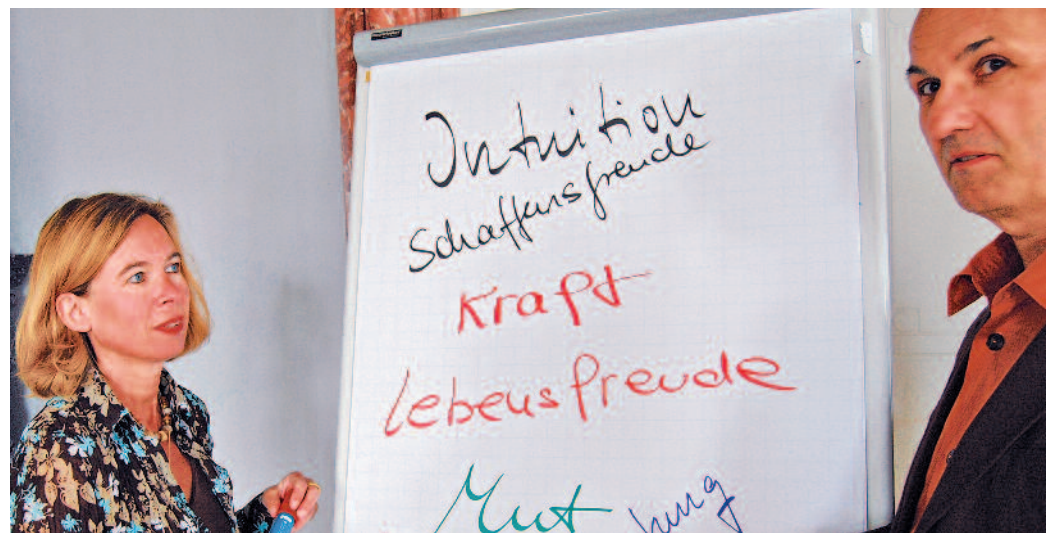 Intuition
Schaffensfreude
Kraft
Lebensfreude
Mut